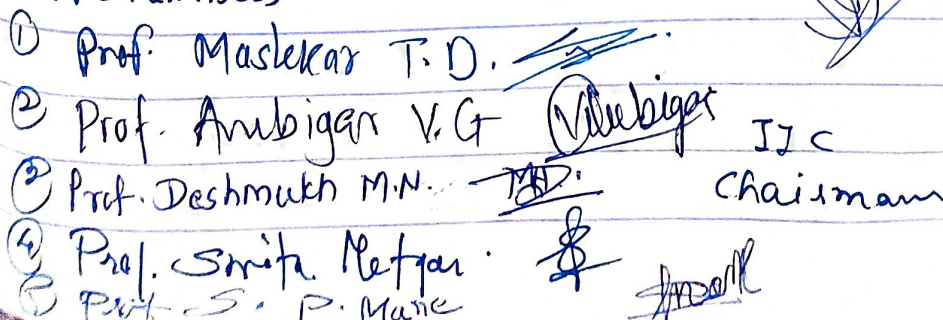 ① Prof. Maslekar T.D.
② Prof. Ambigar V.G
IJC
③ Prof. Deshmukh M.N. M.D.
Chairman
④ Prof. Smita
⑤ Prof. S. P. Mane